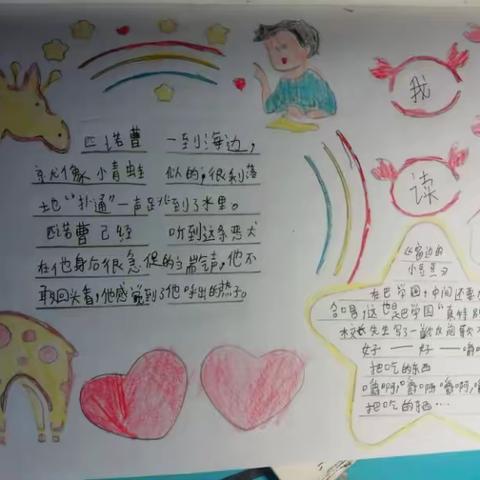 匹诺曹 一到海边，
就像小青蛙 似的，很利落
地“扑通”一声跳到了水里。
匹诺曹已经 听到这条恶犬
在他身后很急促的喘气声，他不
敢回头看，他感觉到了他呼出的热子。
我
读
《窗边的
小豆豆》
在巴学园，中间还要
合唱，这也是巴学园“真特别
校长先生写了一首
好好
把吃的东西
嚼啊，嚼啊，嚼啊，
把吃的东西…